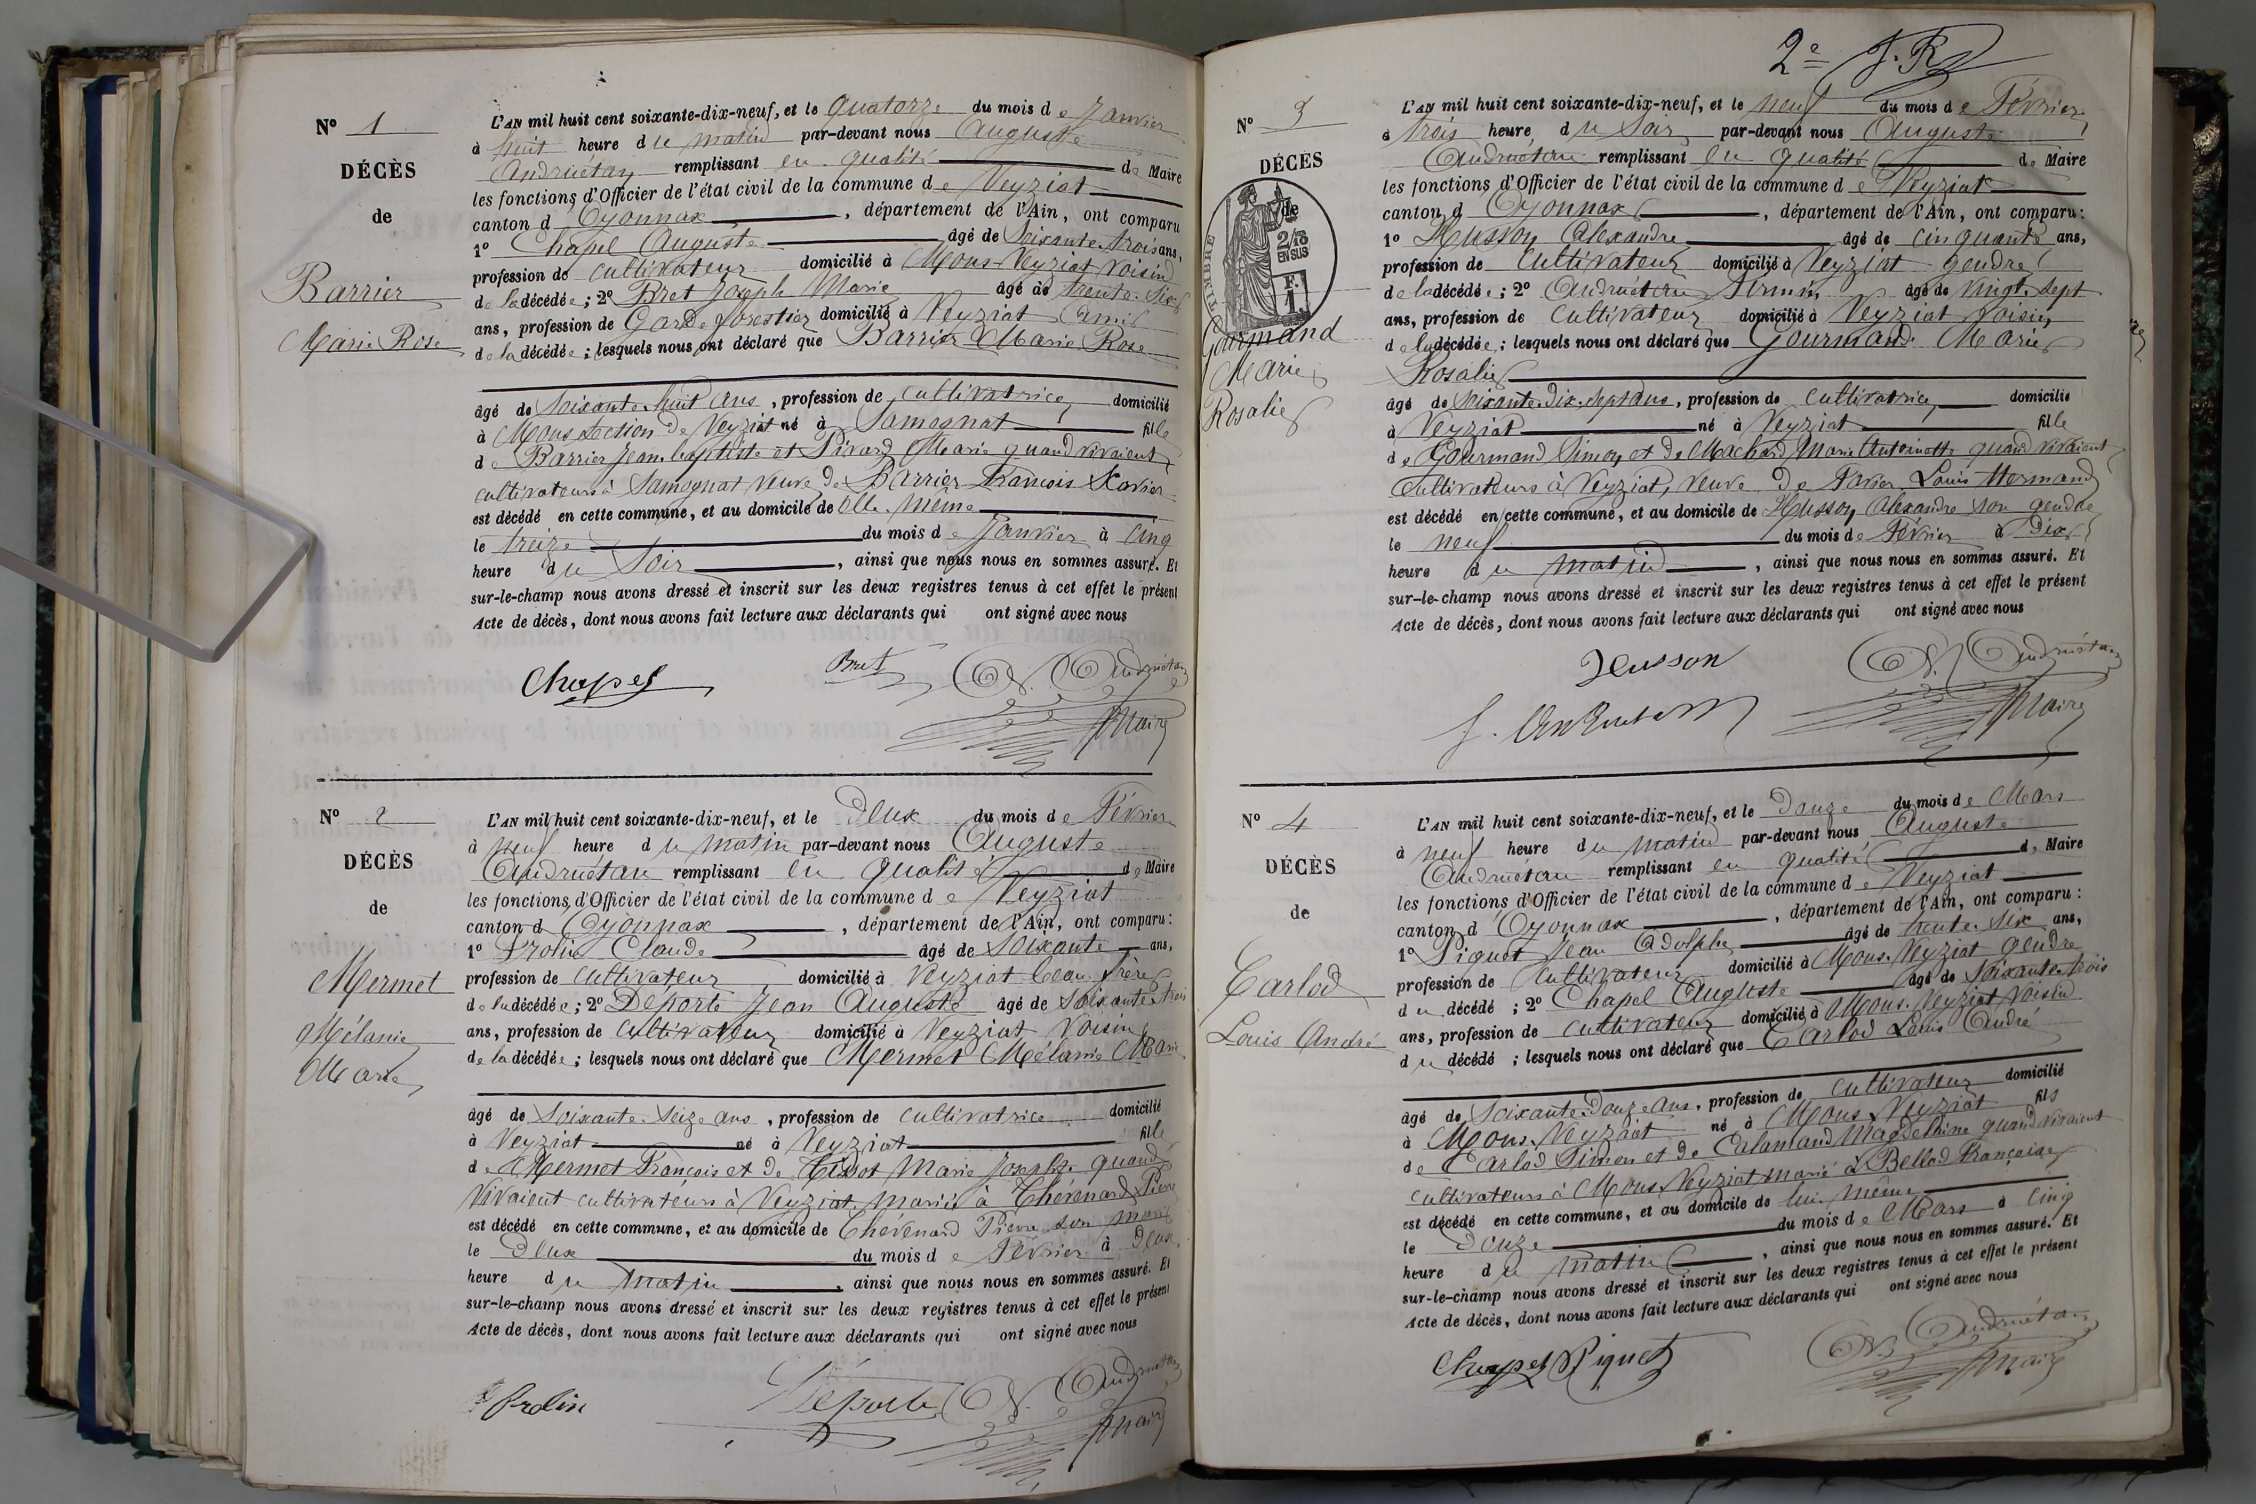 N° 1
DÉCÈS
de
Barrier
Marie Rose
L'AN mil huit cent soixante-dix-neuf, et le quatorze du mois de Janvier
à huit heure du matin par-devant nous Auguste
Andruétan remplissant en qualité de Maire
les fonctions d'Officier de l'état civil de la commune de Veyziat
canton d'Oyonnax, département de l'Ain, ont comparu
1° Chapel Auguste âgé de Soixante-trois ans,
profession de cultivateur domicilié à Mons-Veyziat voisin
de la décédée; 2° Bret Joseph Marie âgé de trente-six
ans, profession de Garde forestier domicilié à Veyziat ami
de la décédée; lesquels nous ont déclaré que Barrier Marie Rose
âgé de Soixante-huit ans, profession de cultivatrice domicilié
à Mons section de Veyziat né à Samognat fille
de Barrier Jean-baptiste et Pirard Marie quand vivaient
cultivateurs à Samognat veuve de Barrier François Xavier
est décédé en cette commune, et au domicile de elle-même
le treize du mois de Janvier à cinq
heure du Soir, ainsi que nous nous en sommes assuré. Et
sur-le-champ nous avons dressé et inscrit sur les deux registres tenus à cet effet le présent
Acte de décès, dont nous avons fait lecture aux déclarants qui ont signé avec nous
Chapel Bret Andruétan
Maire
N° 2
DÉCÈS
de
Mermet
Mélanie
Marie
L'AN mil huit cent soixante-dix-neuf, et le Deux du mois de Février
à neuf heure du matin par-devant nous Auguste
Andruétan remplissant en qualité de Maire
les fonctions d'Officier de l'état civil de la commune de Veyziat
canton d Oyonnax, département de l'Ain, ont comparu:
1° Prolin Claude âgé de Soixante ans,
profession de cultivateur domicilié à Veyziat beau-frère
de la décédée; 2° Deporte Jean Auguste âgé de soixante-trois
ans, profession de cultivateur domicilié à Veyziat voisin
de la décédée; lesquels nous ont déclaré que Mermet Mélanie Marie
âgé de Soixante-Seize ans, profession de cultivatrice domicilié
à Veyziat né à Veyziat fille
de Mermet François et de Tissot Marie Josephe quand
vivaient cultivateurs à Veyziat, mariée à Thévenard Pierre
est décédé en cette commune, et au domicile de Thévenard Pierre son mari
le Deux du mois de Février à Deux
heure du matin, ainsi que nous nous en sommes assuré. Et
sur-le-champ nous avons dressé et inscrit sur les deux registres tenus à cet effet le présent
Acte de décès, dont nous avons fait lecture aux déclarants qui ont signé avec nous
Prolin Déporte Andruétan
Maire
2e J. R
N° 3
DÉCÈS
de
TIMBRE
2/10
EN SUS
F.
1
Gourmand
Marie
Rosalie
L'AN mil huit cent soixante-dix-neuf, et le neuf du mois de Février
à trois heure du Soir par-devant nous Auguste
Andruétan remplissant en qualité de Maire
les fonctions d'Officier de l'état civil de la commune de Veyziat
canton d Oyonnax, département de l'Ain, ont comparu:
1° Husson Alexandre âgé de cinquante ans,
profession de cultivateur domicilié à Veyziat gendre
de la décédée; 2° Andruétan Firmin âgé de Vingt-Sept
ans, profession de cultivateur domicilié à Veyziat voisin
de la décédée; lesquels nous ont déclaré que Gourmand Marie
Rosalie
âgé de Soixante-Dix-Sept ans, profession de cultivatrice domicilié
à Veyziat né à Veyziat fille
de Gourmand Simon et de Machard Marie Antoinette quand vivaient
cultivateurs à Veyziat, veuve de Favier Louis Hermand
est décédé en cette commune, et au domicile de Husson Alexandre son gendre
le neuf du mois de Février à Dix
heure du matin, ainsi que nous nous en sommes assuré. Et
sur-le-champ nous avons dressé et inscrit sur les deux registres tenus à cet effet le présent
Acte de décès, dont nous avons fait lecture aux déclarants qui ont signé avec nous
Husson Andruétan
f. Andruétan Maire
N° 4
DÉCÈS
de
Carlod
Louis André
L'AN mil huit cent soixante-dix-neuf, et le Douze du mois de Mars
à neuf heure du matin par-devant nous Auguste
Andruétan remplissant en qualité de Maire
les fonctions d'Officier de l'état civil de la commune de Veyziat
canton d'Oyonnax, département de l'Ain, ont comparu:
1° Piquet Jean Adolphe âgé de trente-six ans,
profession de cultivateur domicilié à Mons-Veyziat gendre
du décédé; 2° Chapel Auguste âgé de soixante-trois
ans, profession de cultivateur domicilié à Mons-Veyziat voisin
du décédé; lesquels nous ont déclaré que Carlod Louis André
âgé de Soixante-Douze ans, profession de cultivateur domicilié
à Mons-Veyziat né à Mons Veyziat fils
de Carlod Simon et de Calamand Magdelaine quand vivaient
cultivateurs à Mons-Veyziat marié à Bellod Françoise
est décédé en cette commune, et au domicile de lui-même
le Douze du mois de Mars à cinq
heure du matin, ainsi que nous nous en sommes assuré. Et
sur-le-champ nous avons dressé et inscrit sur les deux registres tenus à cet effet le présent
Acte de décès, dont nous avons fait lecture aux déclarants qui ont signé avec nous
Chapel Piquet Andruétan
Maire